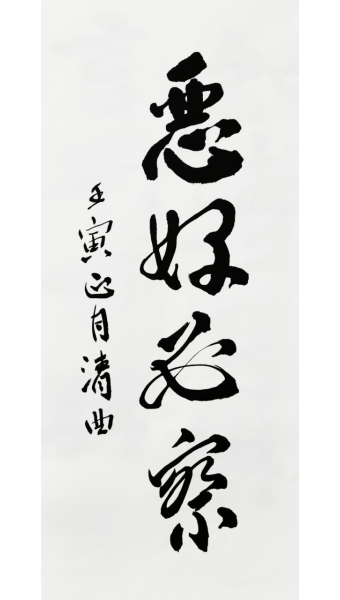 惡好必察
壬寅正月清曲